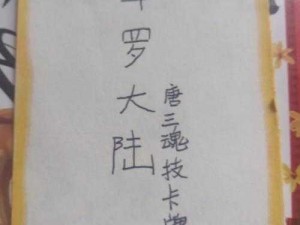 斗罗大陆
唐三魂技卡牌